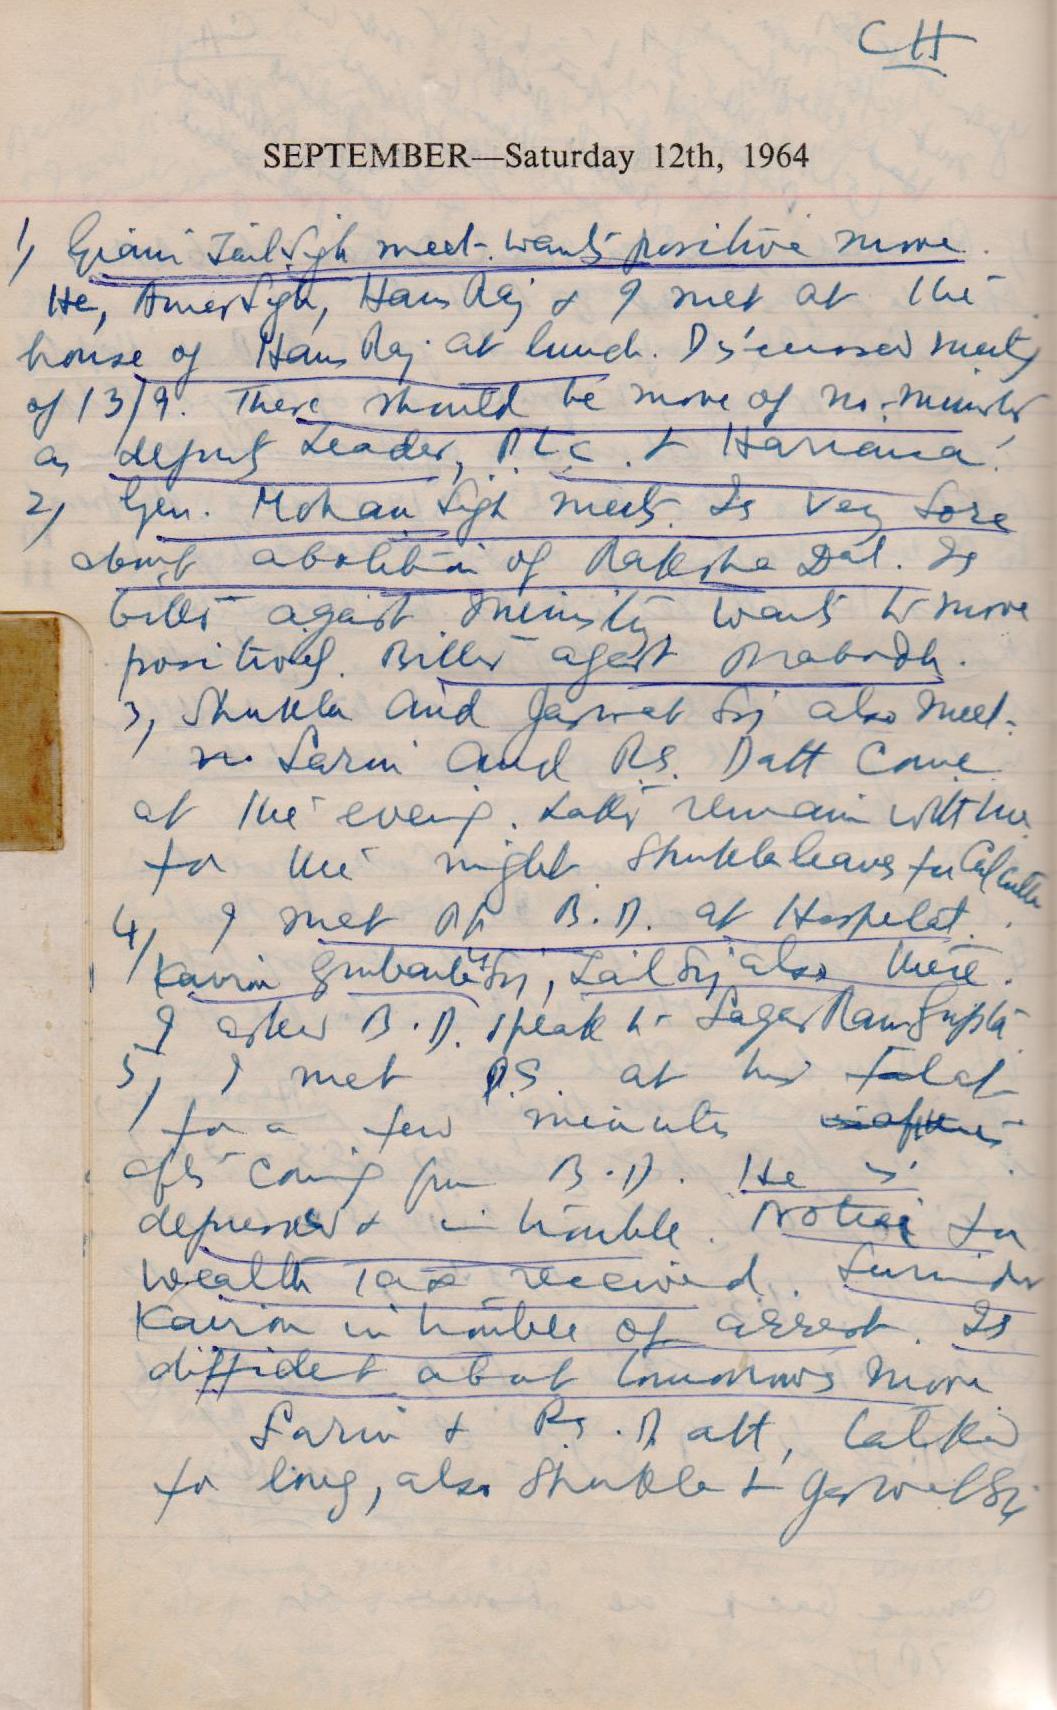 CH
SEPTEMBER—Saturday 12th, 1964
1) Giani Zail Singh meet. wants positive move.
He, Amer Singh, Hans Raj & I met at the
house of Hans Raj at lunch. Discussed meeting
of 13/9. There should be move of no. minister
as deputy Leader, & Hariana.
2) Gen. Mohan Singh meets. Is very sore
about abolition of Raksha Dal. Is
bitter against ministry wants to move
positively. Bitter against Prabodh.
3, Shukla and Jaswat Singh also meet.
Sarin and R.S. Datt come
at the evening. Latter remain with me
for the night Shukla leaves for Calcutta
4) I met B.D. at Hospital.
Kairon Gurbanta Singh, Zail Singh also there.
I asked B.D. speak to Sagar Ram Gupta
5) I met P.S. at his flat
for a few minutes
after coming from B.D. He is
depressed & in trouble. Notice for
Wealth Tax received. Surinder
Kairon in trouble of arrest. Is
diffident about tomorrow's move
Sarin & R.S. Datt, talked
for long, also Shukla & Jaswat Singh